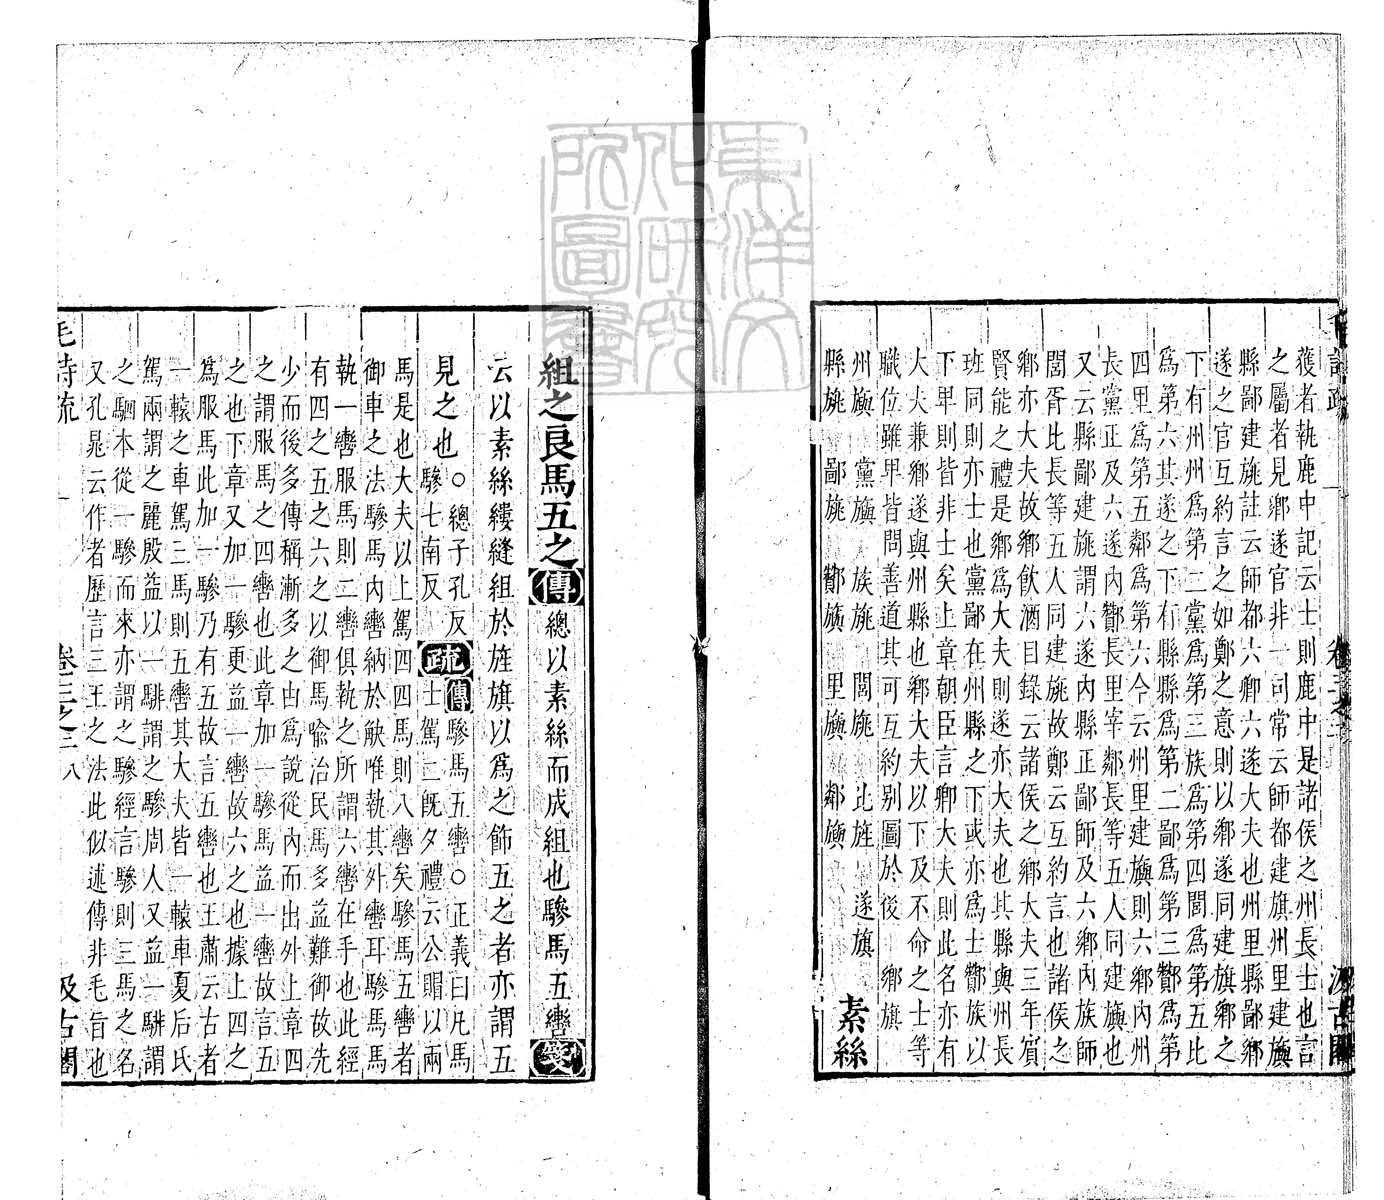 獲者執鹿中記云士則鹿中是諸侯之州長士也言
之屬者見鄉遂官非一司常云師都建旗州里建旟
縣鄙建旐註云師都六鄉六遂大夫也州里縣鄙鄉
遂之官互約言之如鄭之意則以鄉遂同建旗鄉之
下有州州爲第二黨爲第三族爲第四閭爲第五比
爲第六其遂之下有縣縣爲第二鄙爲第三酇爲第
四里爲第五鄰爲第六今云州里建旟則六鄉內州
長黨正及六遂內酇長里宰鄰長等五人同建旟也
又云縣鄙建旐謂六遂內縣正鄙師及六鄉內族師
閭胥比長等五人同建旐故鄭云互約言也諸侯之
鄉亦大夫故鄉飲酒目錄云諸侯之鄉大夫三年賓
賢能之禮是鄉爲大夫則遂亦大夫也其縣與州長
班同則亦士也黨鄙在州縣之下或亦爲士酇族以
下卑則皆非士矣上章朝臣言卿大夫則此名亦有
大夫兼鄉遂與州縣也鄉大夫以下及不命之士等
職位雖卑皆問善道其可互約別圖於後　鄉旗
州旟　黨旟　族旐　閭旐　比旐　遂旗
縣旐　鄙旐　酇旟　里旟　鄰旟
素絲
組之良馬五之傳總以素絲而成組也驂馬五轡箋
云以素絲縷縫組於旌旗以爲之飾五之者亦謂五
見之也○總子孔反
驂七南反
疏傳驂馬五轡○正義曰凡馬
士駕二既夕禮云公賵以兩
馬是也大夫以上駕四四馬則八轡矣驂馬五轡者
御車之法驂馬內轡納於觖唯執其外轡耳驂馬馬
執一轡服馬則二轡俱執之所謂六轡在手也此經
有四之五之六之以御馬喻治民馬多益難御故先
少而後多傳稱漸多之由爲說從內而出外上章四
之謂服馬之四轡也此章加一驂馬益一轡故言五
之也下章又加一驂更益一轡故六之也據上四之
爲服馬此加一驂乃有五故言五轡也王肅云古者
一轅之車駕三馬則五轡其大夫皆一轅車夏后氏
駕兩謂之麗殷益以一騑謂之驂周人又益一騑謂
之駟本從一驂而來亦謂之驂經言驂則三馬之名
又孔晁云作者歷言三王之法此似述傳非毛旨也
毛詩疏
卷三之二
八
汲古閣